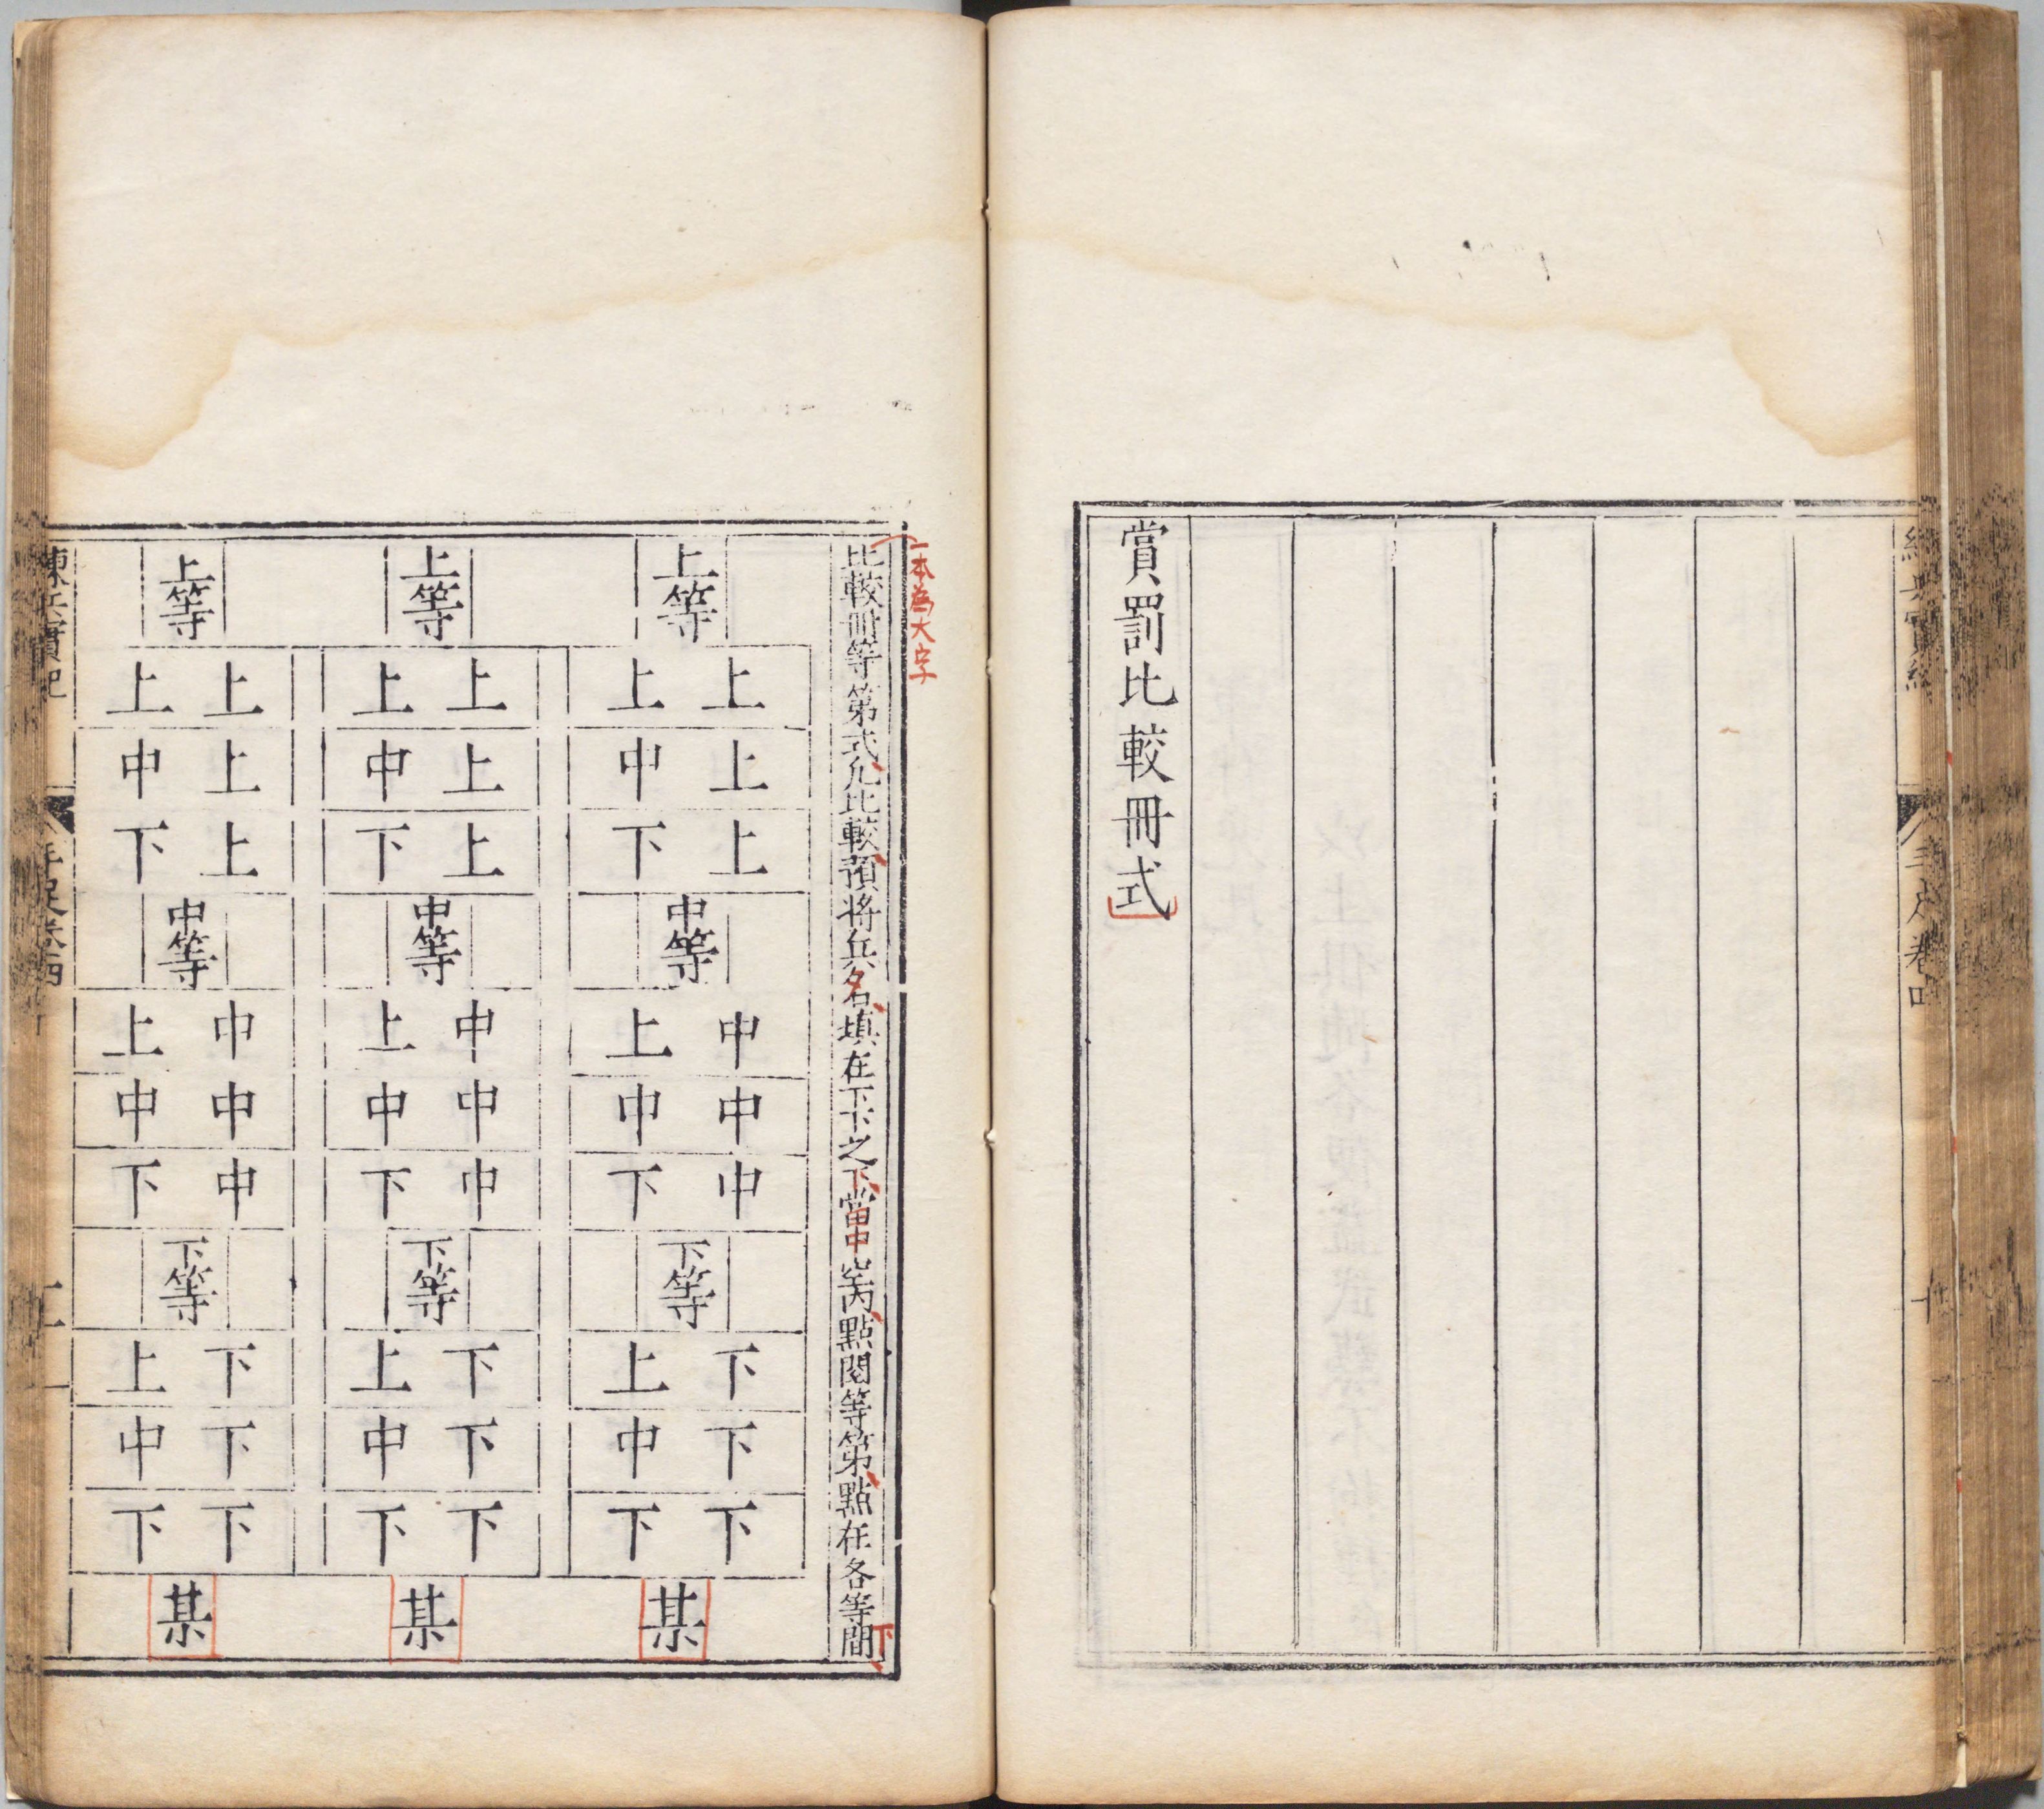 賞罰比較冊式
一本為大字
比較冊等第式凡比較預將兵名填在下下之下當中點閱等第點在各等間下
上等
上上
上中
上下
中等
中上
中中
中下
下等
下上
下中
下下
某
上等
上上
上中
上下
中等
中上
中中
中下
下等
下上
下中
下下
某
上等
上上
上中
上下
中等
中上
中中
中下
下等
下上
下中
下下
某
練兵實紀
卷四